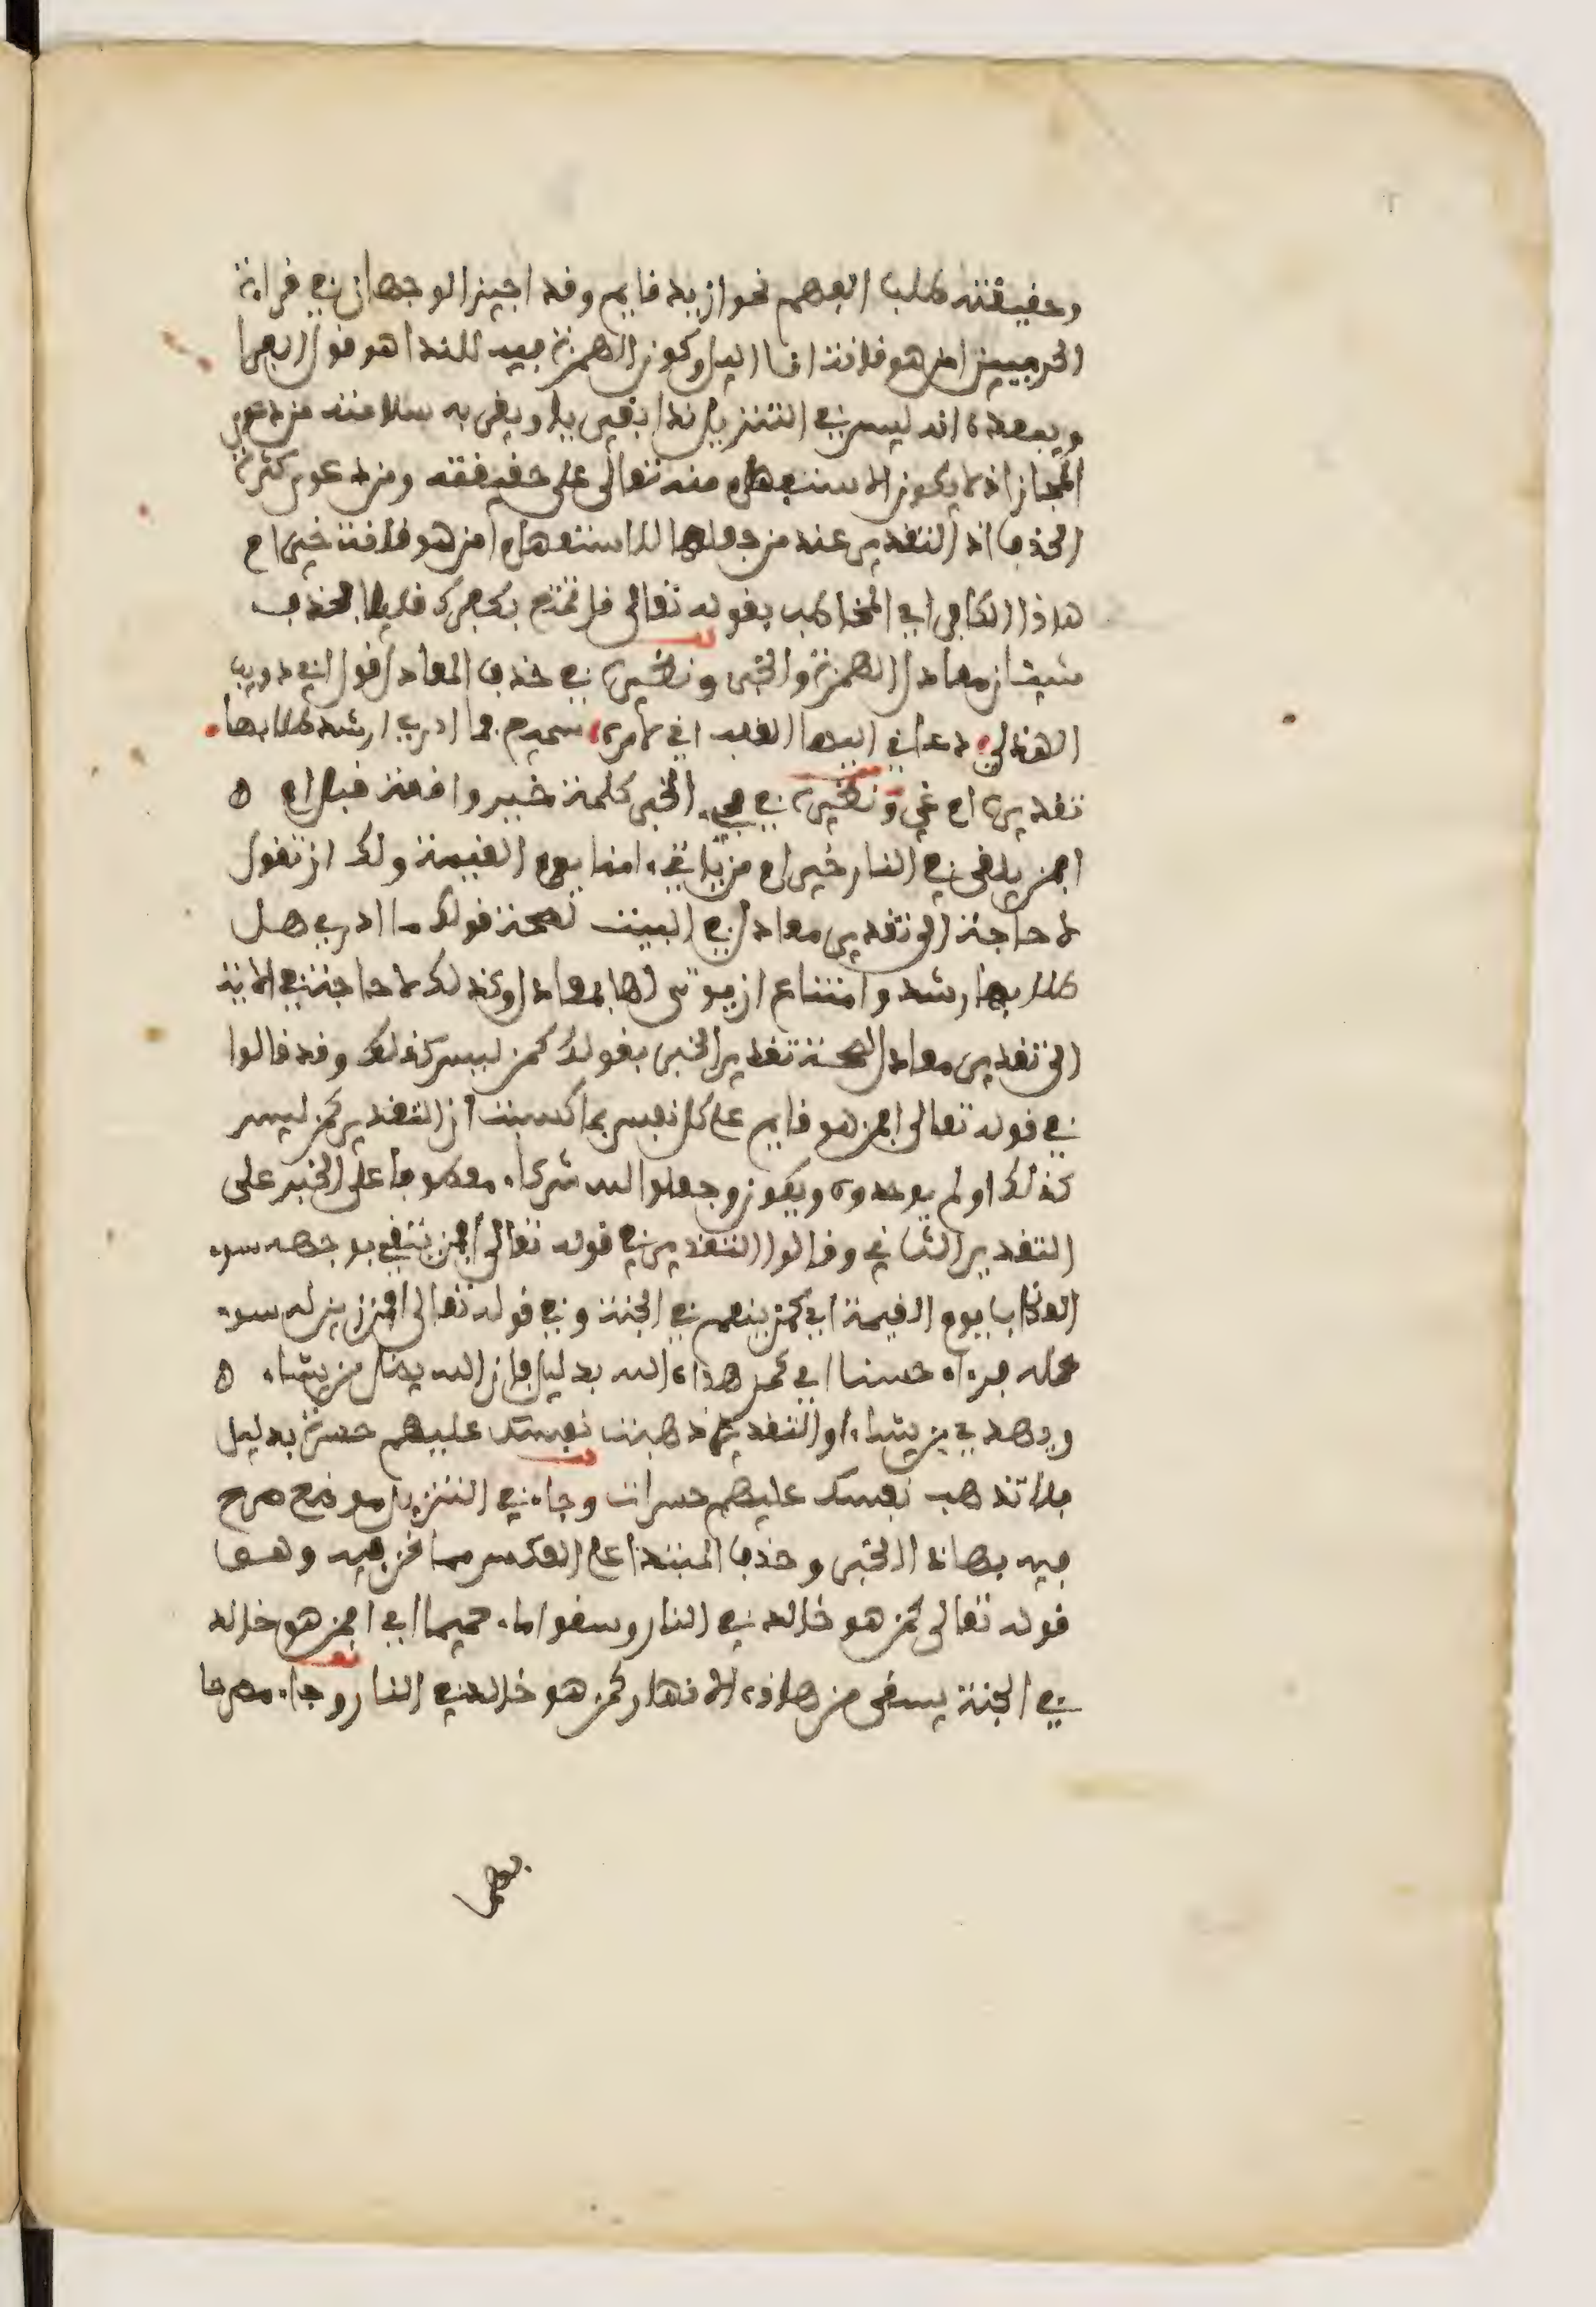 وحقيقته طلب الفهم نحو ازيد قايم وقد اجيز الوجهان في قراءة
الحرميين امن هو قانت اناء اليل وكون الهمزة فيه للندا هو قول الفرا
ويبعده انه ليس في التنزيل ندا بغير يا ويقربه سلامته من دعوى
المجاز اذ لا يكون الاستفهام منه تعالى على حقيقته ومن دعوى كثرة
الحذف اذ التقدير عند من جعلها للاستفهام امن هو قانت خير ام
هاذا الكافر اي المخاطب بقوله تعالى قل تمتع بكفرك قليلا فحذف
شيئان معادل الهمزة والخبر ونظيره في حذف المعادل قول ابي ذويب
الهذلي دعاني اليها القلب اني لامره سميع فما ادري ارشد طلابها
تقديره ام غي ونظيره في مجيء الخبر كلمة خير واقعة قبل ام
افمن يلقى في النار خير ام من ياتي امنا يوم القيمة ولك ان تقول
لا حاجة الى تقدير معادل في البيت لصحة قولك ما ادري هل
طلابها رشد وامتناع ان يوتى لها بمعادل وكذلك لا حاجة في الاية
الى تقدير معادل لصحة تقدير الخبر بقولك كمن ليس كذلك وقد قالوا
في قوله تعالى افمن هو قايم على كل نفس بما كسبت ان التقدير كمن ليس
كذلك او لم يوحدوه ويكون وجعلوا لله شركاء معطوفا على الخبر على
التقدير الثاني وقالوا التقدير في قوله تعالى افمن يتقي بوجهه سوء
العذاب يوم القيمة اي كمن ينعم في الجنة وفي قوله تعالى افمن زين له سوء
عمله فرءاه حسنا اي كمن هداه الله بدليل فان الله يضل من يشاء
ويهدي من يشاء او التقدير ذهبت نفسك عليهم حسرة بدليل
فلا تذهب نفسك عليهم حسرات وجاء في التنزيل موضع صرح
فيه بهاذا الخبر وحذف المبتدا على العكس مما نحن فيه وهو
قوله تعالى كمن هو خالد في النار وسقوا ماء حميما اي افمن هو خالد
في الجنة يسقى من هاذه الانهار كمن هو خالد في النار وجاء مصرحا